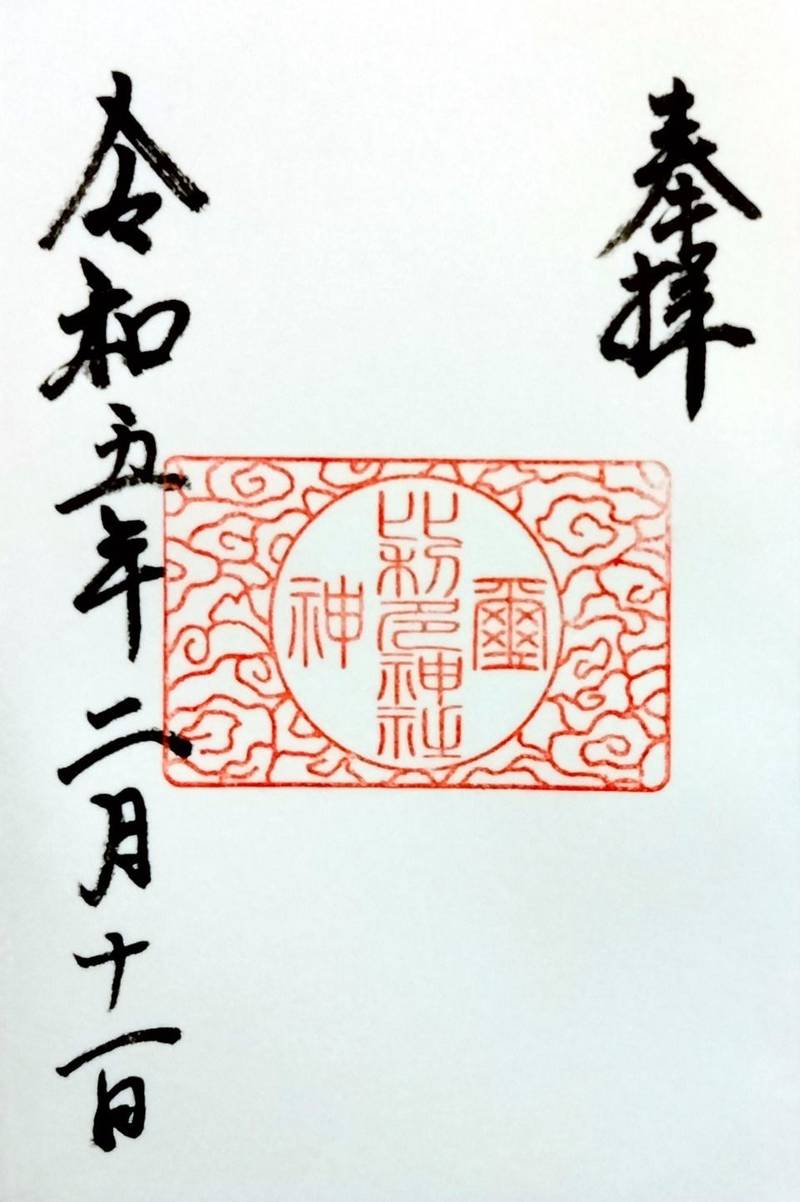 奉拝
璽
神社
神
令和五年二月十一日